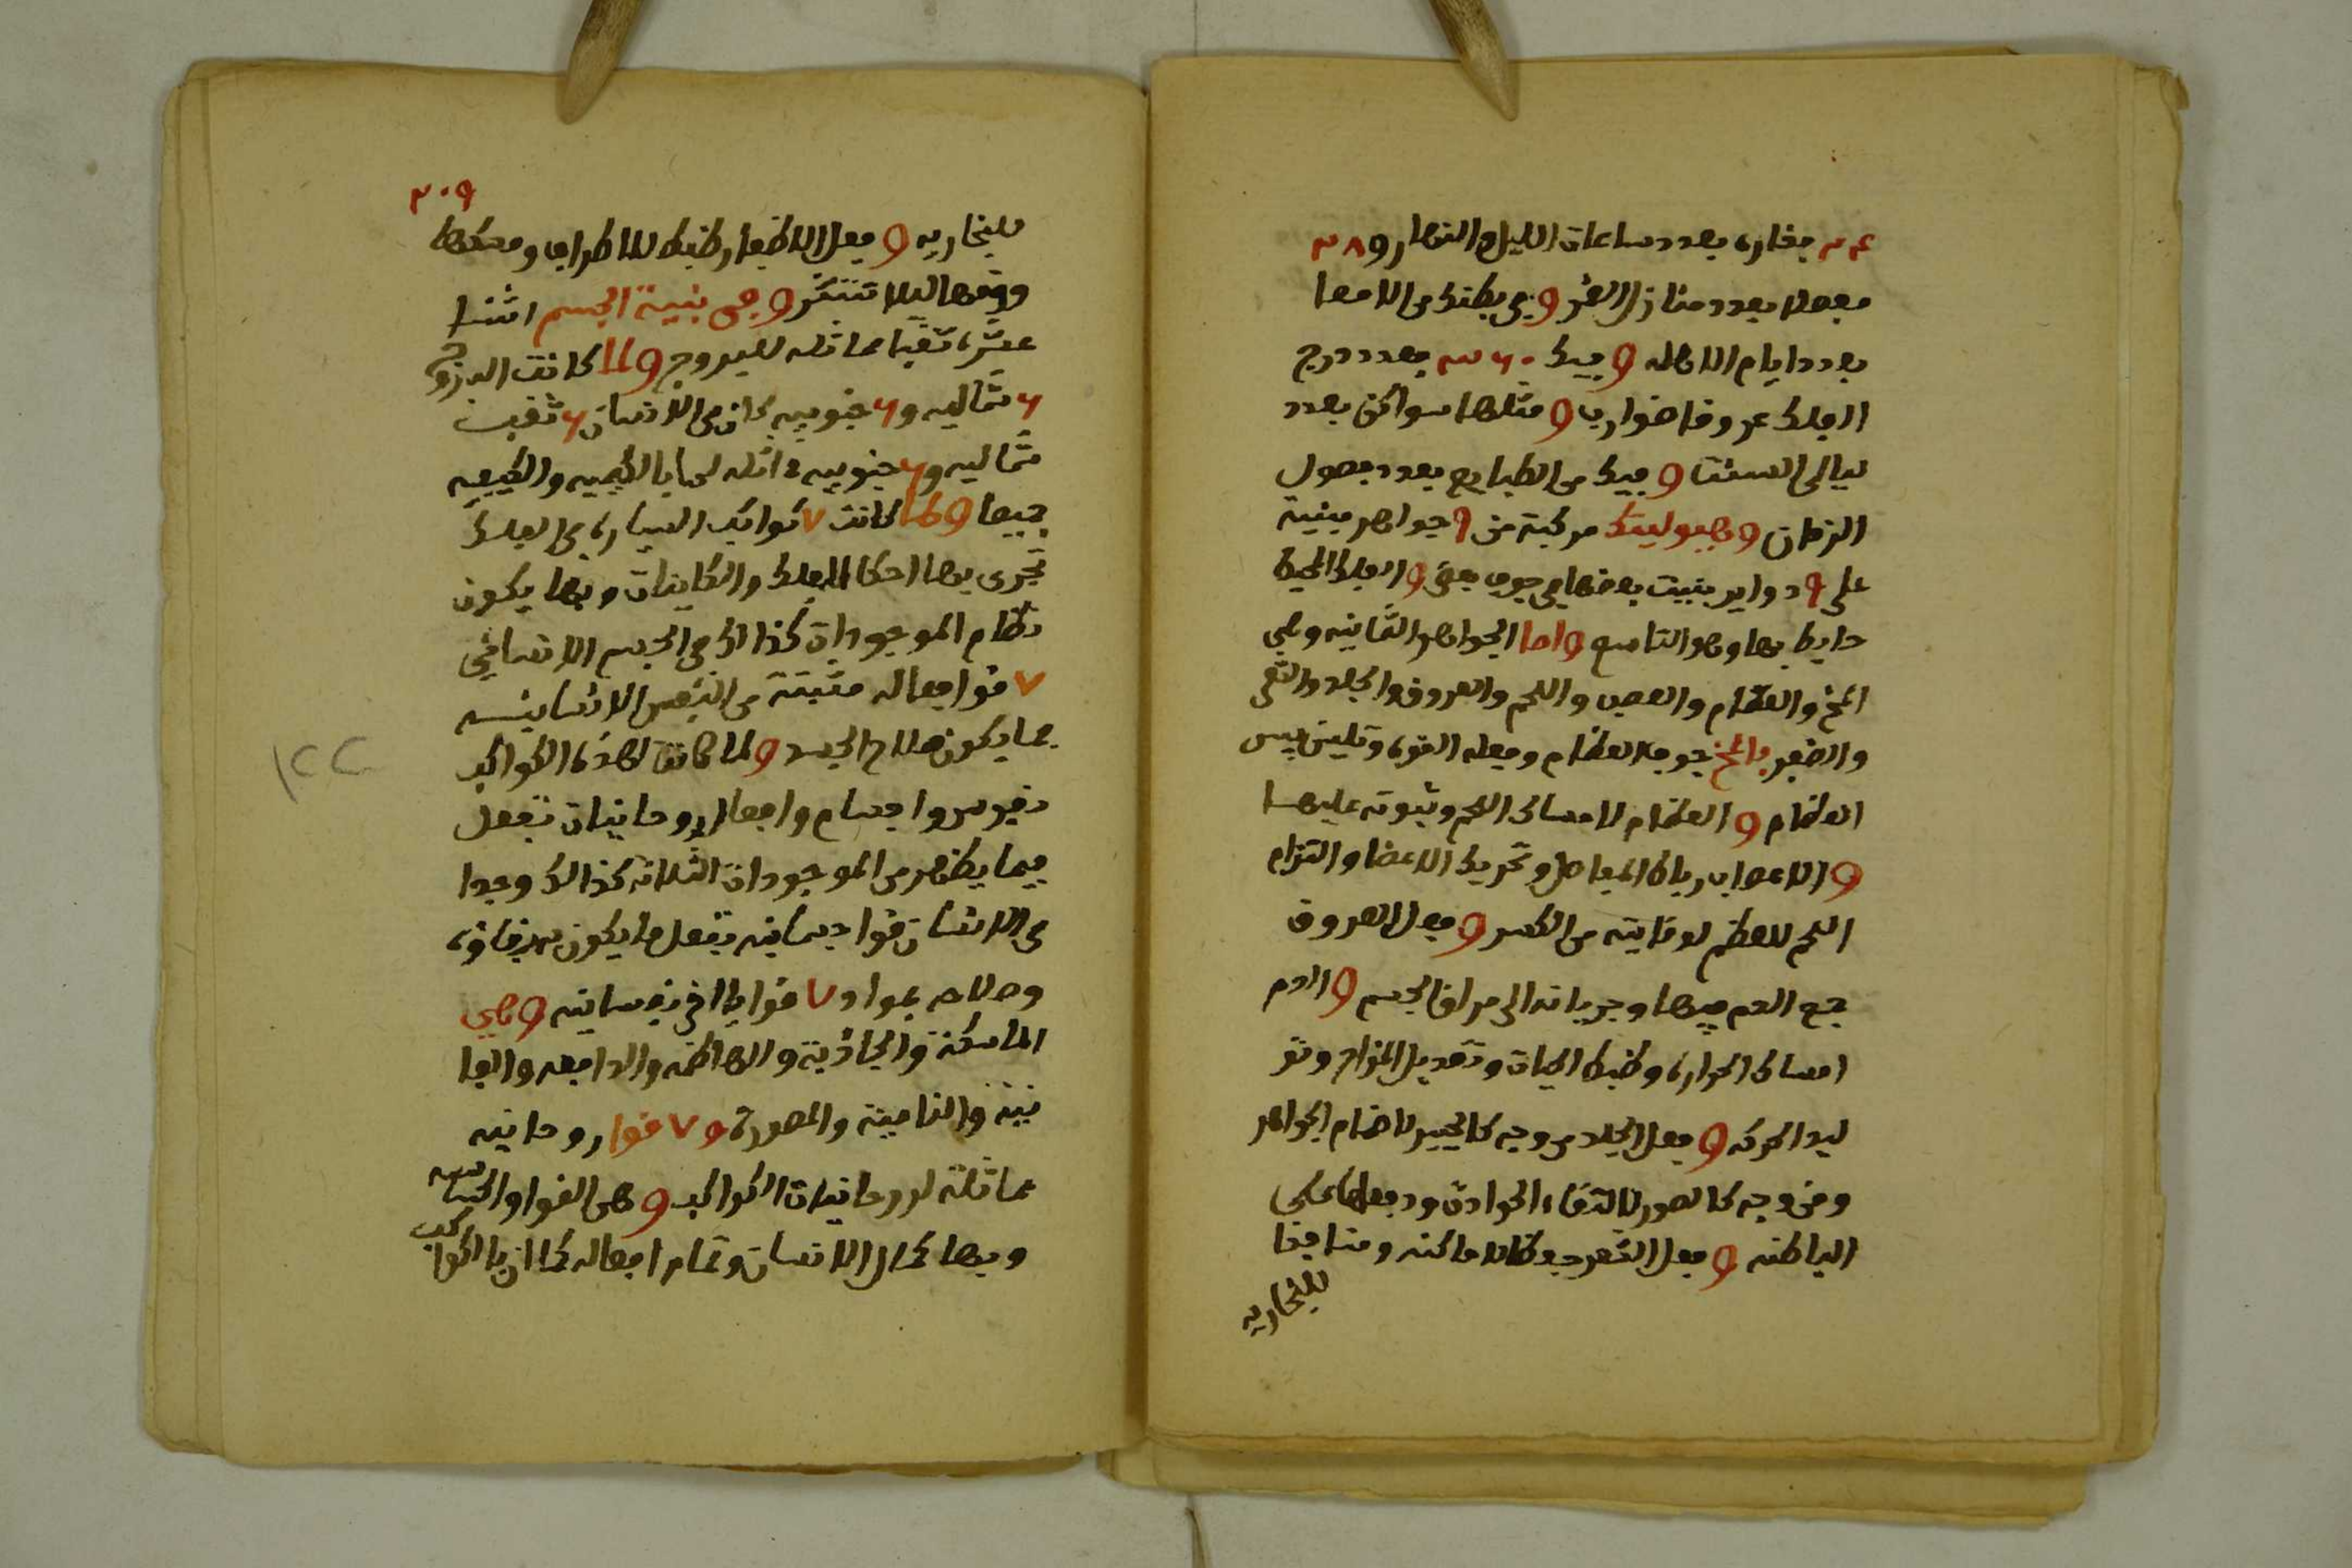 ٢٤ بفاره بعدد ساعات الليل والنهار و٢٨
مفصلا بعدد منازل القمر وفي بطنك من الامعا
بعدد ايام الاهله وفيك ٣٦٠ بعدد درج
الفلك عروقا ضوارب ومثلها سواكن بعدد
ليالي السنة وفيك من الطبايع بعدد فصول
الزمان وهيوليتك مركبة من ٩ جواهر مبنية
على ٩ دواير بنيت بعضها في جوف بعض والفلك المحيط
حايط بها وهو التاسع واما الجواهر الثمانيه وهي
المخ والعظام والعصب واللحم والعروق والجلد والشعر
والضفر فالمخ جوف العظام وفعله القوه وتليين يبس
العظام والعظام لامساك اللحم وثبوته عليها
والاعصاب رباط المفاصل وتحريك الاعضا والتزام
اللحم للعظم لوقايته من الكسر وفعل العروق
جمع الدم فيها وجريانه الى مراق الجسم والدم
امساك الحراره وضبط الحياة وتعديل المزاج وتو
ليد الحركه وفعل الجلد من وجه كالمحيير لاضمام الجواهر
ومن وجه كالصور لالتقاء الحوادث ودفعها على
الباطنه وفعل الشعر حفظا لاماكنه ومنافذا
للبخاريه
٢٠٩
للبخاريه وفعل الاظفار ضبط للاطراف ومسكها
ووقيها ليلا تنتثر وفي بنية الجسم اثنتا
عشره ثقبا مماثله للبروج ولما كانت البروج
٦ شماليه و٦ جنوبيه كان في الانسان ٦ ثقب
شماليه و٦ جنوبيه مماثله لها بالكميه والكيفيه
جميعا ولما كانت ٧ كواكب السياره في الفلك
تجري بها احكام الفلك والكاينات وبها يكون
نظام الموجودات كذالك في الجسم الانساني
٧ قوا فعاله منبثة من النفس الانسانيه
بها يكون صلاح الجسد ولما كانت لهذه الكواكب
نفوس واجسام وافعال روحانيات تفعل
فيما يظهر من الموجودات الثلاثه كذالك وجدا
في الانسان قوا جسمانيه تفعل ما يكون به بقاؤه
وصلاحه بمواد ٧ قوايا اخر نفسانيه وهي
الماسكة والجاذبة والهاظمه والدافعه والغا
ذيه والناميه والمصورة و٧ قوا روحانيه
مماثلة لروحانيات الكواكب وهي القوا والحساسه
وبها كمال الانسان وتمام افعاله كما ان بالكواكب
١٢٢